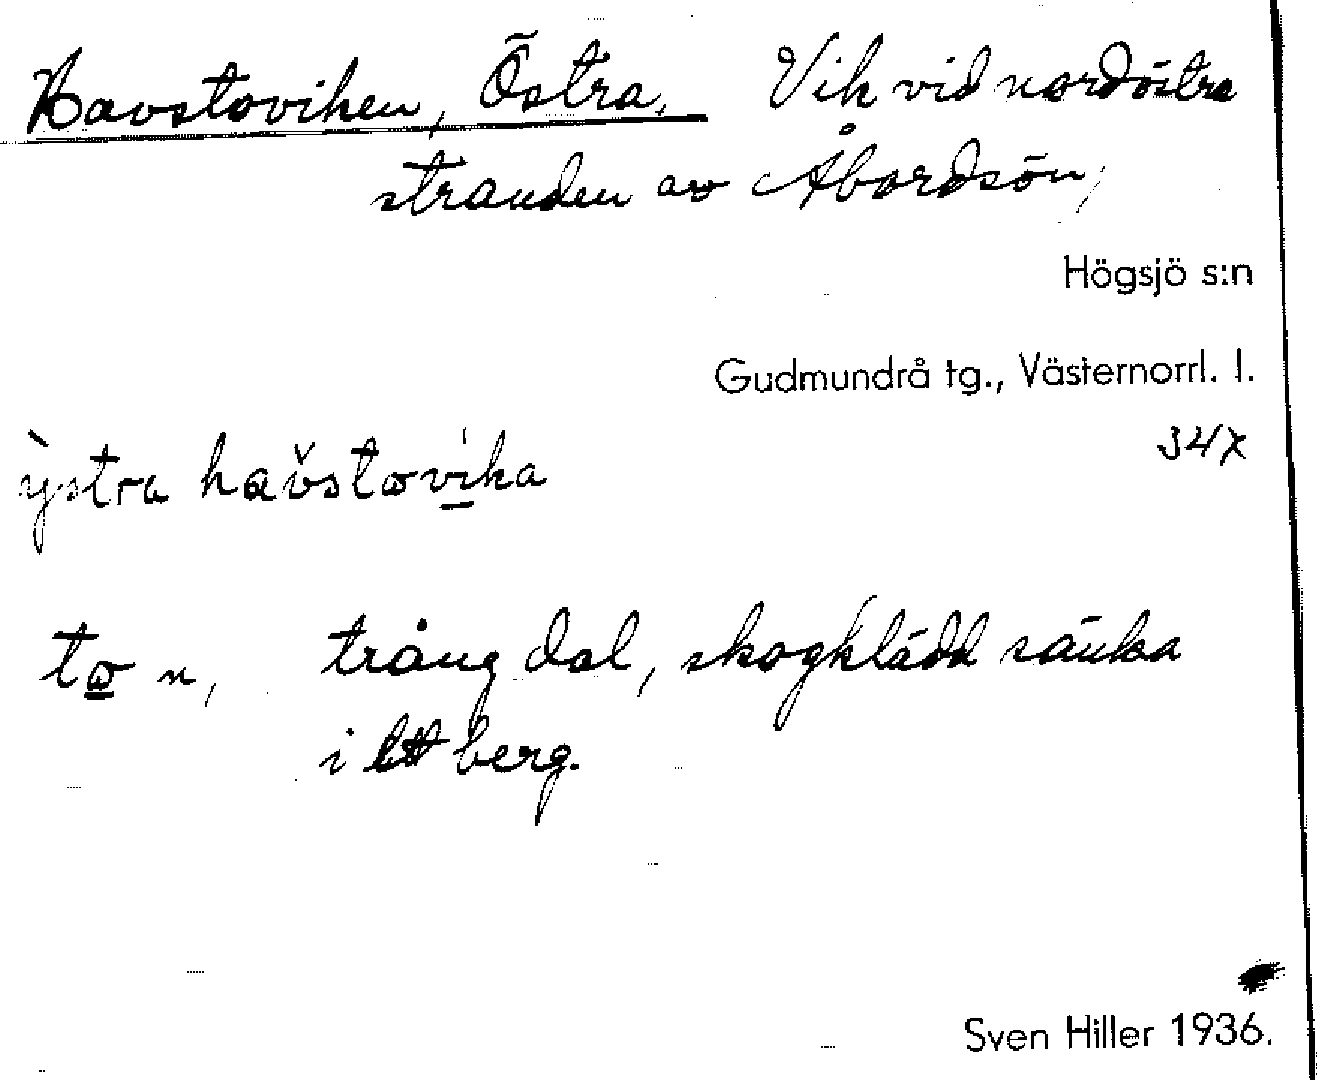 Havstoviken, Östra, Vik vid nordöstra
stranden av Åbordsön,
Högsjö s:n
Gudmundrå tg., Västernorrl. l.
34X
ỳstra havstovika
to n, trång dal, skogklädd sänka
i ett berg.
Sven Hiller 1936.